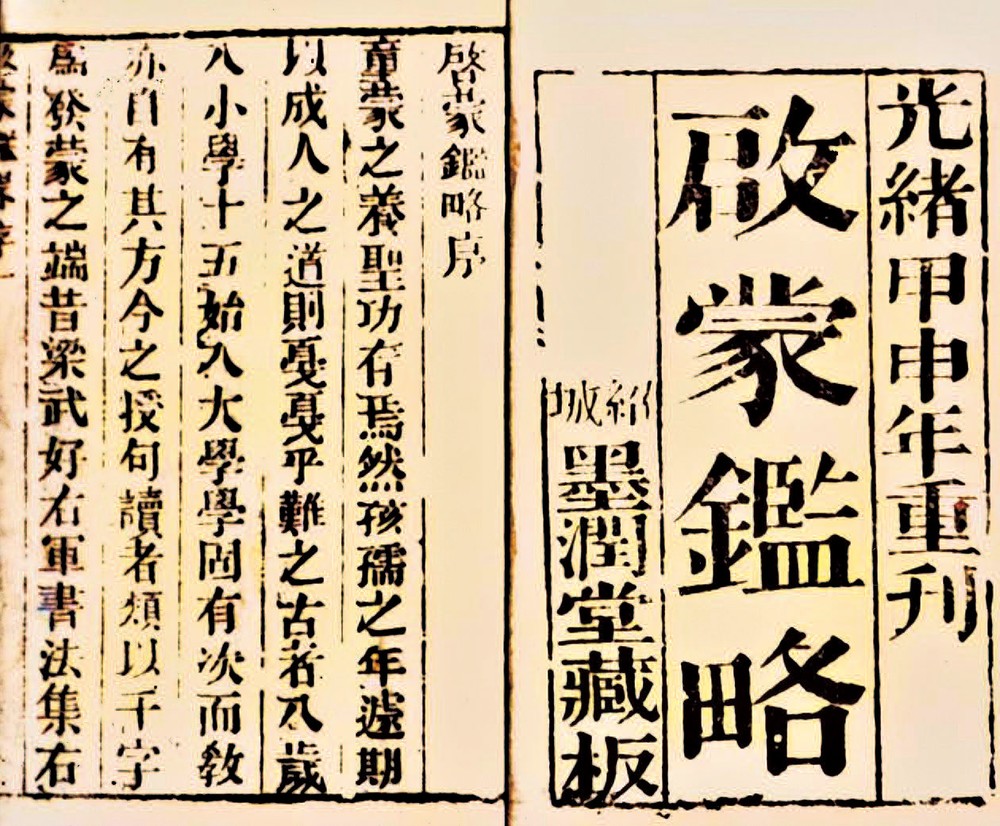 光緒甲申年重刊
啟蒙鑑略
紹城
墨潤堂藏板
啓蒙鑑略序
童蒙之養聖功在焉然孩孺之年遽期
以成人之道則戛戛乎難之古者八歲
入小學十五始入大學學固有次而教
亦自有其方今之授句讀者類以千字
爲發蒙之端昔梁武好右軍書法集右